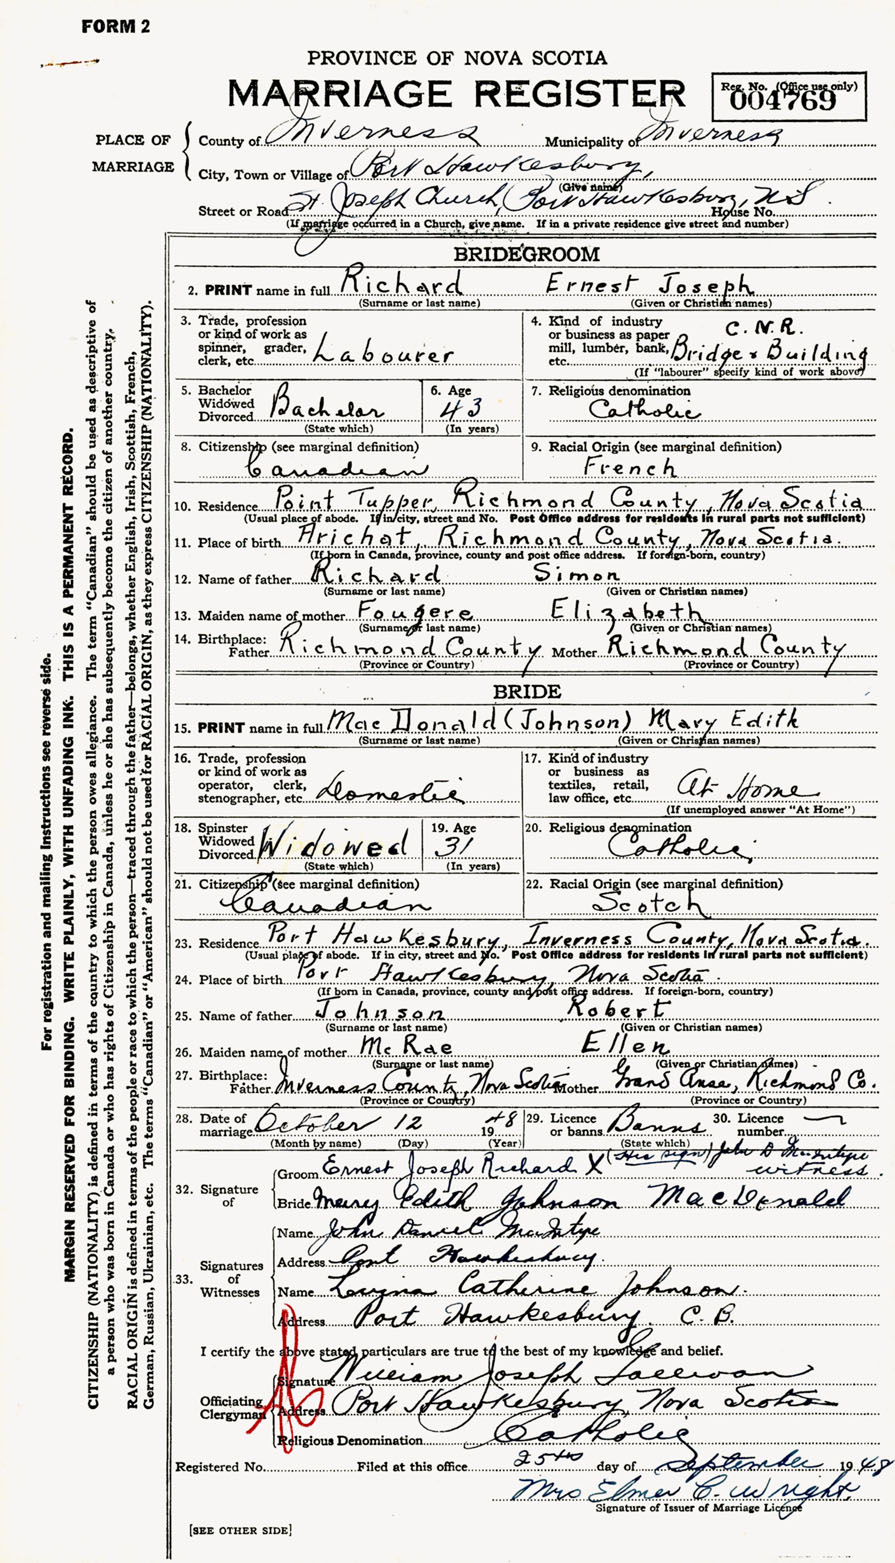 FORM 2
PROVINCE OF NOVA SCOTIA
MARRIAGE REGISTER
Reg. No. (Office use only)
004769
PLACE OF MARRIAGE
County of Inverness Municipality of Inverness
City, Town or Village of Port Hawkesbury,
(Give name)
Street or Road St Joseph Church, Port Hawkesbury, N.S. House No.
(If marriage occurred in a Church, give name. If in a private residence give street and number)
BRIDEGROOM
2. PRINT name in full Richard Ernest Joseph
(Surname or last name) (Given or Christian names)
3. Trade, profession or kind of work as spinner, grader, clerk, etc. Labourer
4. Kind of industry or business as paper mill, lumber, bank, etc. C.N.R. Bridge & Building
(If "labourer" specify kind of work above)
5. Bachelor Widowed Divorced Bachelor
(State which)
6. Age 43
(In years)
7. Religious denomination Catholic
8. Citizenship (see marginal definition) Canadian
9. Racial Origin (see marginal definition) French
10. Residence Point Tupper, Richmond County, Nova Scotia
(Usual place of abode. If in city, street and No. Post Office address for residents in rural parts not sufficient)
11. Place of birth Arichat, Richmond County, Nova Scotia.
(If born in Canada, province, county and post office address. If foreign-born, country)
12. Name of father Richard Simon
(Surname or last name) (Given or Christian names)
13. Maiden name of mother Fougere Elizabeth
(Surname or last name) (Given or Christian names)
14. Birthplace: Father Richmond County Mother Richmond County
(Province or Country) (Province or Country)
BRIDE
15. PRINT name in full MacDonald (Johnson) Mary Edith
(Surname or last name) (Given or Christian names)
16. Trade, profession or kind of work as operator, clerk, stenographer, etc. Domestic
17. Kind of industry or business as textiles, retail, law office, etc. At Home
(If unemployed answer "At Home")
18. Spinster Widowed Divorced Widowed
(State which)
19. Age 31
(In years)
20. Religious denomination Catholic
21. Citizenship (see marginal definition) Canadian
22. Racial Origin (see marginal definition) Scotch
23. Residence Port Hawkesbury, Inverness County, Nova Scotia.
(Usual place of abode. If in city, street and No. Post Office address for residents in rural parts not sufficient)
24. Place of birth Port Hawkesbury, Nova Scotia.
(If born in Canada, province, county and post office address. If foreign-born, country)
25. Name of father Johnson Robert
(Surname or last name) (Given or Christian names)
26. Maiden name of mother McRae Ellen
(Surname or last name) (Given or Christian names)
27. Birthplace: Father Inverness County, Nova Scotia Mother Grand Anse, Richmond Co.
(Province or Country) (Province or Country)
28. Date of marriage October 12 1948
(Month by name) (Day) (Year)
29. Licence or banns Banns
(State which)
30. Licence number
32. Signature of
Groom Ernest Joseph Richard X (His sign) John D MacIntyre witness.
Bride Mary Edith Johnson MacDonald
33. Signatures of Witnesses
Name John Daniel MacIntyre
Address Port Hawkesbury.
Name Catherine Johnson.
Address Port Hawkesbury C. B.
I certify the above stated particulars are true to the best of my knowledge and belief.
Officiating Clergyman
Signature William Joseph
Address Port Hawkesbury, Nova Scotia
Religious Denomination Catholic
Registered No. Filed at this office 25th day of September 1948
Mrs Elmer C. Wright
Signature of Issuer of Marriage Licence
[SEE OTHER SIDE]
For registration and mailing instructions see reverse side.
MARGIN RESERVED FOR BINDING. WRITE PLAINLY, WITH UNFADING INK. THIS IS A PERMANENT RECORD.
CITIZENSHIP (NATIONALITY) is defined in terms of the country to which the person owes allegiance. The term "Canadian" should be used as descriptive of
a person who was born in Canada or who has rights of Citizenship in Canada, unless he or she has subsequently become the citizen of another country.
RACIAL ORIGIN is defined in terms of the people or race to which the person—traced through the father—belongs, whether English, Irish, Scottish, French,
German, Russian, Ukrainian, etc. The terms "Canadian" or "American" should not be used for RACIAL ORIGIN, as they express CITIZENSHIP (NATIONALITY).